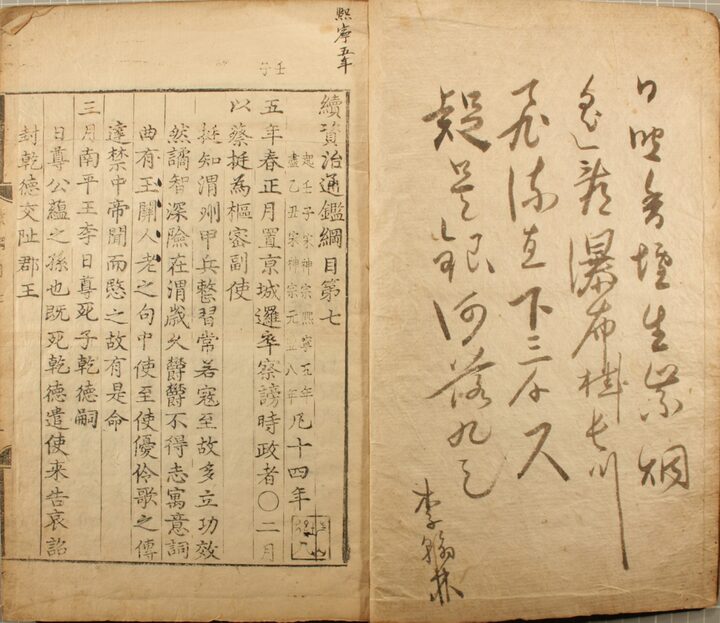 日照香爐生紫烟
遙看瀑布掛長川
飛流直下三千尺
疑是銀河落九天
李翰林
熙寧五年
壬子
續資治通鑑綱目第七
起壬子宋神宗熙寧五年
盡乙丑宋神宗元豊八年
凡十四年
五年春正月置京城邏卒察謗時政者〇二月
以蔡挺為樞密副使
挺知渭州甲兵整習常若寇至故多立功效
然譎智深險在渭歲久欝欝不得志寓意詞
曲有玉關人老之句中使至使優伶歌之傳
達禁中帝聞而愍之故有是命
三月南平王李日尊死子乾德嗣
日尊公蘊之孫也既死乾德遣使來告哀詔
封乾德交阯郡王